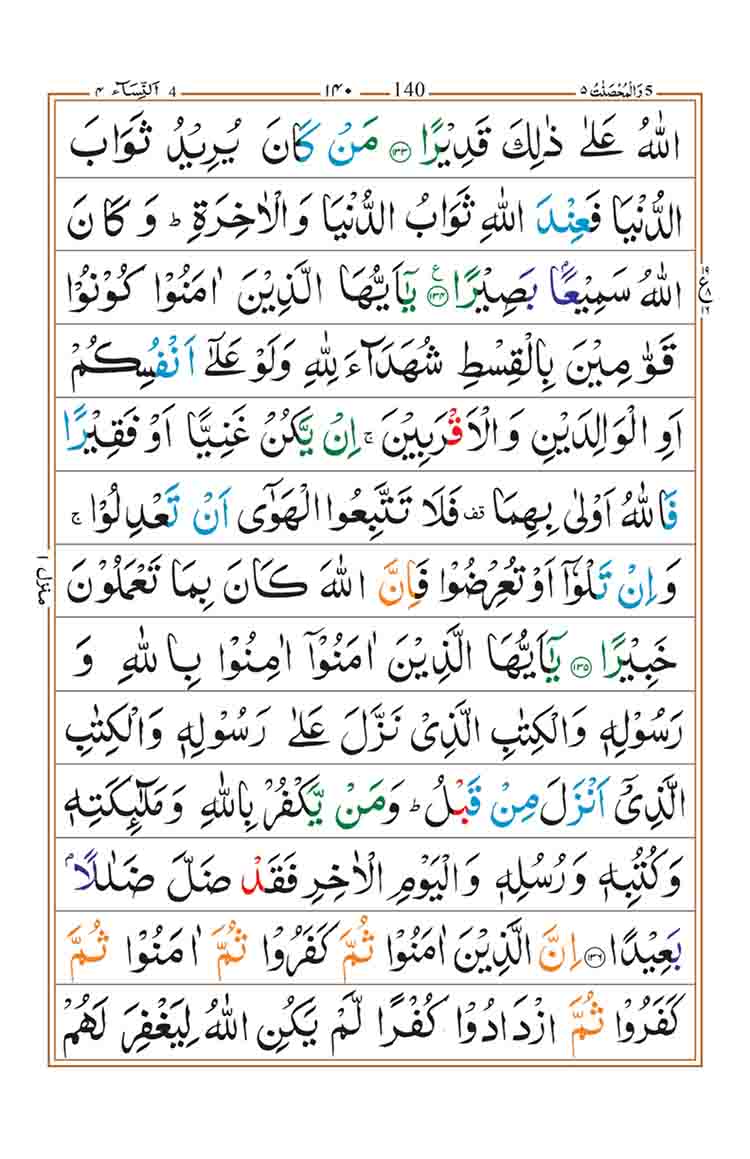 5 وَالْمُحْصَنٰتُ ۵ 140 ۱۴۰ 4 اَلنِّسَآء ۴
اللّٰهُ عَلٰى ذٰلِكَ قَدِيْرًا ۝۱۳۳ مَنْ كَانَ يُرِيْدُ ثَوَابَ
الدُّنْيَا فَعِنْدَ اللّٰهِ ثَوَابُ الدُّنْيَا وَالْاٰخِرَةِ ؕ وَ كَانَ
اللّٰهُ سَمِيْعًۢا بَصِيْرًا ۝۱۳۴ ع يٰۤاَيُّهَا الَّذِيْنَ اٰمَنُوْا كُوْنُوْا
۱۹ ع ۸ ۱۶
قَوّٰمِيْنَ بِالْقِسْطِ شُهَدَآءَ لِلّٰهِ وَلَوْ عَلٰۤى اَنْفُسِكُمْ
اَوِ الْوَالِدَيْنِ وَالْاَقْرَبِيْنَ ۚ اِنْ يَّكُنْ غَنِيًّا اَوْ فَقِيْرًا
فَاللّٰهُ اَوْلٰى بِهِمَا قف فَلَا تَتَّبِعُوا الْهَوٰۤى اَنْ تَعْدِلُوْا ۚ
وَ اِنْ تَلْوٗۤا اَوْ تُعْرِضُوْا فَاِنَّ اللّٰهَ كَانَ بِمَا تَعْمَلُوْنَ
منزل ۱
خَبِيْرًا ۝۱۳۵ يٰۤاَيُّهَا الَّذِيْنَ اٰمَنُوْۤا اٰمِنُوْا بِاللّٰهِ وَ
رَسُوْلِهٖ وَالْكِتٰبِ الَّذِيْ نَزَّلَ عَلٰى رَسُوْلِهٖ وَالْكِتٰبِ
الَّذِيْۤ اَنْزَلَ مِنْ قَبْلُ ؕ وَمَنْ يَّكْفُرْ بِاللّٰهِ وَمَلٰٓئِكَتِهٖ
وَكُتُبِهٖ وَرُسُلِهٖ وَالْيَوْمِ الْاٰخِرِ فَقَدْ ضَلَّ ضَلٰلًاۢ
بَعِيْدًا ۝۱۳۶ اِنَّ الَّذِيْنَ اٰمَنُوْا ثُمَّ كَفَرُوْا ثُمَّ اٰمَنُوْا ثُمَّ
كَفَرُوْا ثُمَّ ازْدَادُوْا كُفْرًا لَّمْ يَكُنِ اللّٰهُ لِيَغْفِرَ لَهُمْ